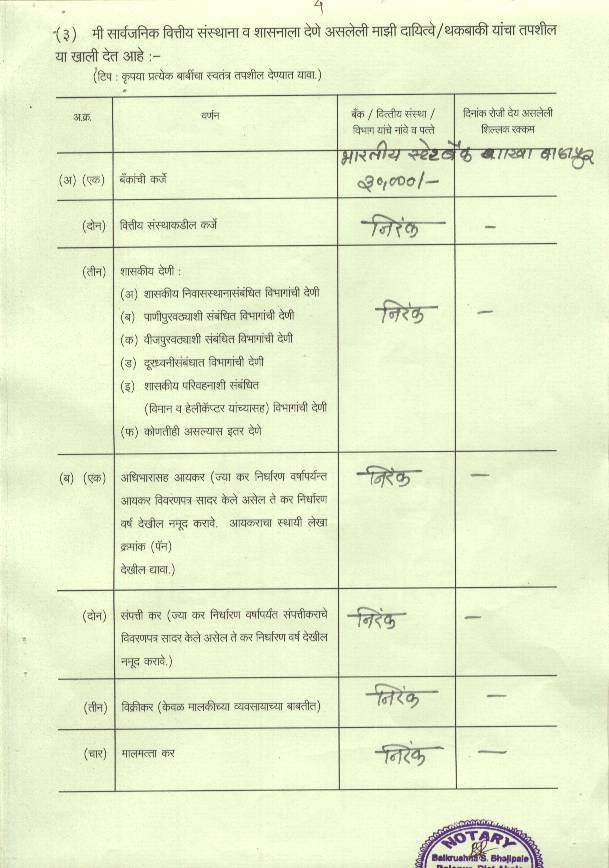 4
(३) मी सार्वजनिक वित्तीय संस्थाना व शासनाला देणे असलेली माझी दायित्वे/थकबाकी यांचा तपशील
या खाली देत आहे :–
(टिप : कृपया प्रत्येक बाबींचा स्वतंत्र तपशील देण्यात यावा.)
अ.क्र. वर्णन बँक / वित्तीय संस्था / दिनांक रोजी देय असलेली
विभाग यांचे नांवे व पत्ते शिल्लक रक्कम
भारतीय स्टेट बँक शाखा बाळापुर
(अ) (एक) बँकांची कर्जे ३०,०००/–
(दोन) वित्तीय संस्थाकडील कर्जे निरंक –
(तीन) शासकीय देणी :
(अ) शासकीय निवासस्थानासंबंधित विभागांची देणी
(ब) पाणीपुरवठ्याशी संबंधित विभागांची देणी निरंक –
(क) वीजपुरवठ्याशी संबंधित विभागांची देणी
(ड) दूरध्वनीसंबंघात विभागांची देणी
(इ) शासकीय परिवहनाशी संबंधित
(विमान व हेलीकॅप्टर यांच्यासह) विभागांची देणी
(फ) कोणतीही असल्यास इतर देणे
(ब) (एक) अधिभारासह आयकर (ज्या कर निर्धारण वर्षापर्यन्त निरंक –
आयकर विवरणपत्र सादर केले असेल ते कर निर्धारण
वर्ष देखील नमूद करावे. आयकराचा स्थायी लेखा
क्रमांक (पॅन)
देखील द्यावा.)
(दोन) संपत्ती कर (ज्या कर निर्धारण वर्षापर्यंत संपत्तीकराचे निरंक –
विवरणपत्र सादर केले असेल ते कर निर्धारण वर्ष देखील
नमूद करावे.)
(तीन) विक्रीकर (केवळ मालकीच्या व्यवसायाच्या बाबतीत) निरंक –
(चार) मालमत्ता कर निरंक –
NOTARY
Balkrushna S. Bhojpale